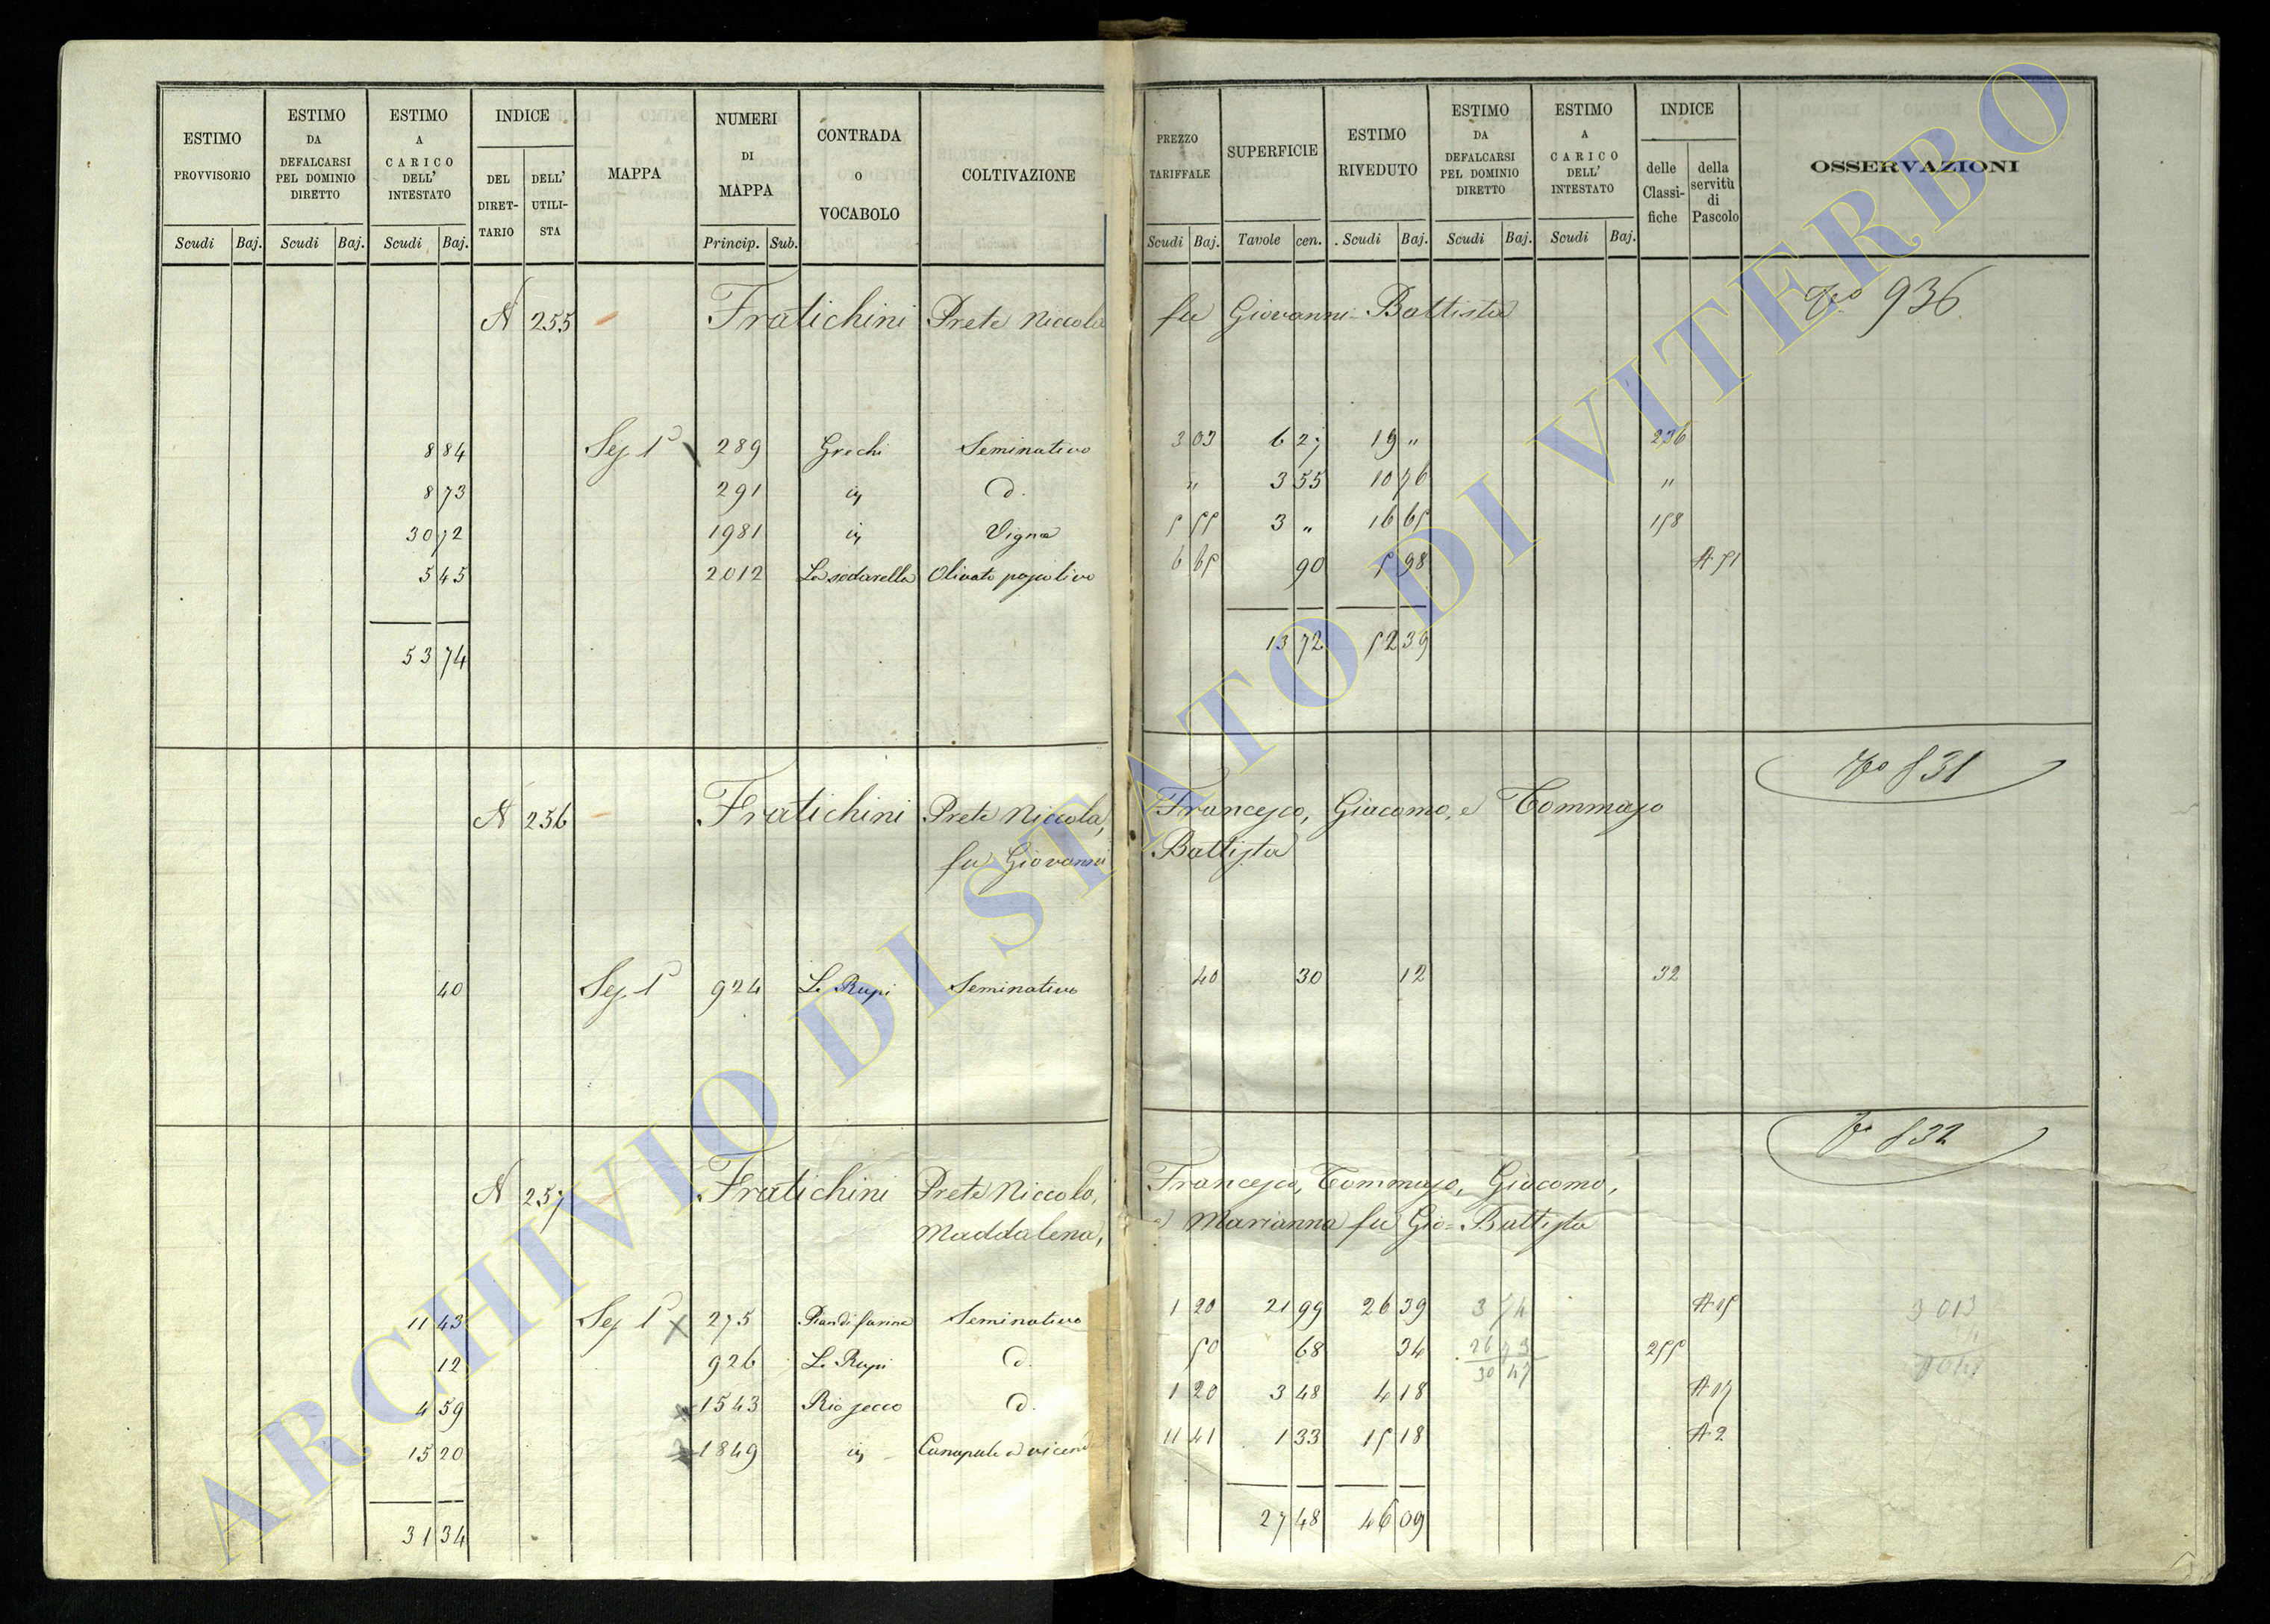 ESTIMO PROVVISORIO | ESTIMO DA DEFALCARSI PEL DOMINIO DIRETTO | ESTIMO A CARICO DELL' INTESTATO | INDICE DEL DIRETTARIO | DELL' UTILISTA | MAPPA | NUMERI DI MAPPA | CONTRADA O VOCABOLO | COLTIVAZIONE | PREZZO TARIFFALE | SUPERFICIE | ESTIMO RIVEDUTO | ESTIMO DA DEFALCARSI PEL DOMINIO DIRETTO | ESTIMO A CARICO DELL' INTESTATO | INDICE delle Classifiche | della servitù di Pascolo | OSSERVAZIONI
Scudi Baj. Scudi Baj. Scudi Baj. Princip. Sub. Scudi Baj. Tavole cen. Scudi Baj. Scudi Baj. Scudi Baj.
N 255 Fratichini Prete Niccola fu Giovanni Battista 936
8 84 Sez 1ª 289 Grechi Seminativo 3 03 6 27 19 " 236
8 73 291 id. d. " 3 55 10 76 "
30 72 1981 id. Vigna 5 55 3 " 16 65 158
5 45 2012 La sodarella Olivato pascolivo 6 65 90 5 98 A 51
53 74 13 72 52 39
N 256 Fratichini Prete Niccola, Francesco, Giacomo, e Tommaso 831
fu Giovanni Battista
40 Sez. 1ª 924 Le Rupi Seminativo 40 30 12 32
N 257 Fratichini Prete Niccola, Francesco, Tommaso, Giacomo, 832
Maddalena, e Marianna fu Gio= Battista
11 43 Sez 1ª 275 Pian di farina Seminativo 1 20 21 99 26 39 3 74 A 15 3 013
12 926 Le Rupi d. 50 68 34 26 73 255
30 47
4 59 1543 Rio secco d. 1 20 3 48 4 18 A 17
15 20 1849 id. Canapule a vicend 11 41 1 33 15 18 A 2
31 34 27 48 46 09
ARCHIVIO DI STATO DI VITERBO